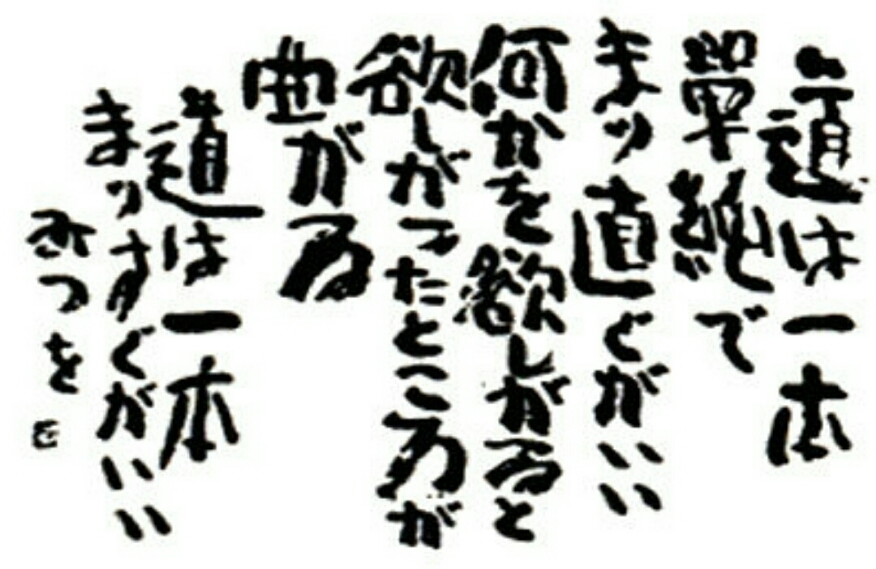 道は一本
單純で
まッ直ぐがいい
何かを欲しがると
欲しがったところが
曲がる
道は一本
まっすぐがいい
みつを